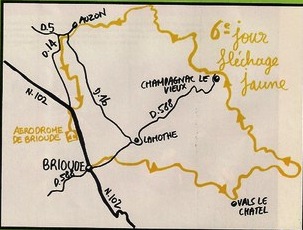 D.5
AUZON
6e jour
fléchage
jaune
D.14
CHAMPAGNAC LE
VIEUX
N.102
D.16
D.588
AERODROME
DE BRIOUDE
LAMOTHE
BRIOUDE
D.588
N.102
VALS LE
CHATEL